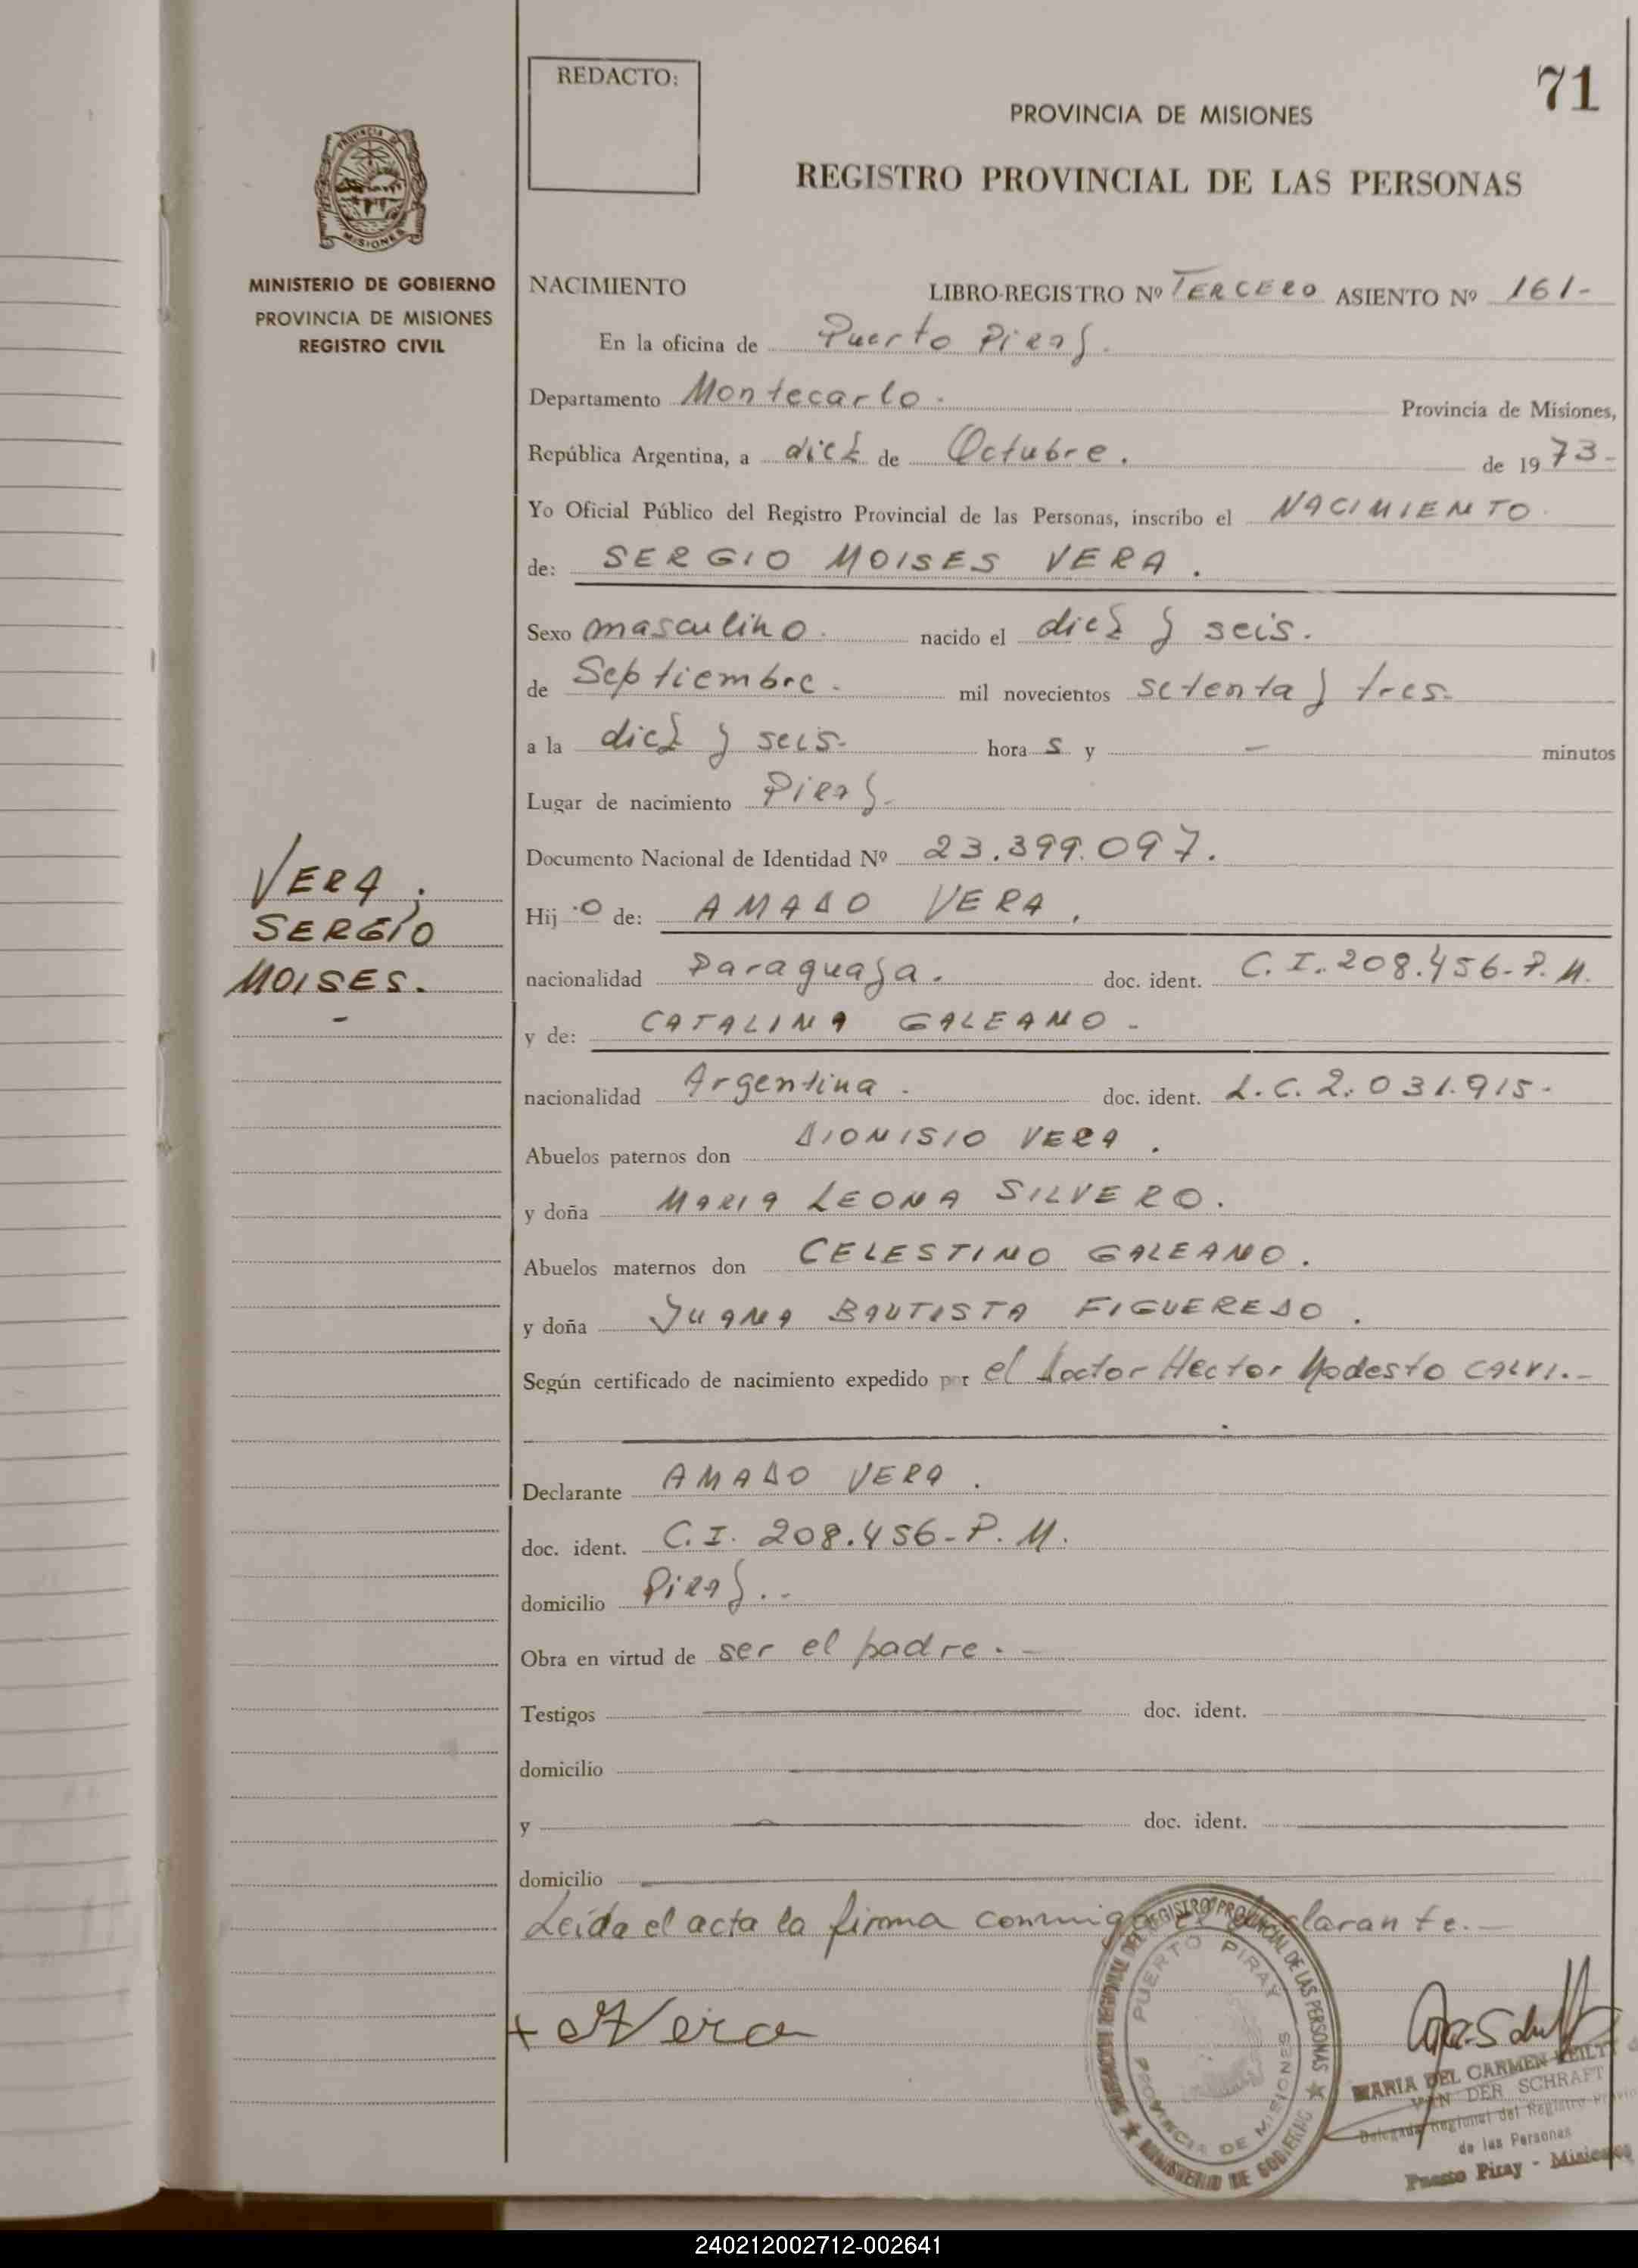 REDACTO:
71
PROVINCIA DE MISIONES
REGISTRO PROVINCIAL DE LAS PERSONAS
PROVINCIA DE MISIONES
MINISTERIO DE GOBIERNO
PROVINCIA DE MISIONES
REGISTRO CIVIL
NACIMIENTO LIBRO-REGISTRO Nº TERCERO ASIENTO Nº 161-
En la oficina de Puerto Piray.
Departamento Montecarlo. Provincia de Misiones,
República Argentina, a diez de Octubre. de 1973-
Yo Oficial Público del Registro Provincial de las Personas, inscribo el NACIMIENTO.
de: SERGIO MOISES VERA.
Sexo masculino. nacido el diez y seis.
de Septiembre. mil novecientos setenta y tres.
a la diez y seis- hora s y - minutos
Lugar de nacimiento Piray.
Documento Nacional de Identidad Nº 23.399.097.
VERA.
SERGIO
MOISES.
-
Hij o de: AMADO VERA.
nacionalidad Paraguaya. doc. ident. C. I. 208.456-P. M.
y de: CATALINA GALEANO -
nacionalidad Argentina. doc. ident. L. C. 2.031.915-
Abuelos paternos don DIONISIO VERA.
y doña MARIA LEONA SILVERO.
Abuelos maternos don CELESTINO GALEANO.
y doña JUANA BAUTISTA FIGUEREDO.
Según certificado de nacimiento expedido por el doctor Hector Modesto CALVI.-
Declarante AMADO VERA.
doc. ident. C. I. 208.456-P. M.
domicilio Piray.-
Obra en virtud de ser el padre.-
Testigos doc. ident.
domicilio
y doc. ident.
domicilio
Leída el acta la firma conmigo el declarante.-
+ A Vera
REGISTRO PROVINCIAL DE LAS PERSONAS
PUERTO PIRAY
PROVINCIA DE MISIONES
MINISTERIO DE GOBIERNO
MARIA DEL CARMEN
VAN DER SCHRAFT
Delegada Regional del Registro
de las Personas
Puerto Piray - Misiones
240212002712-002641